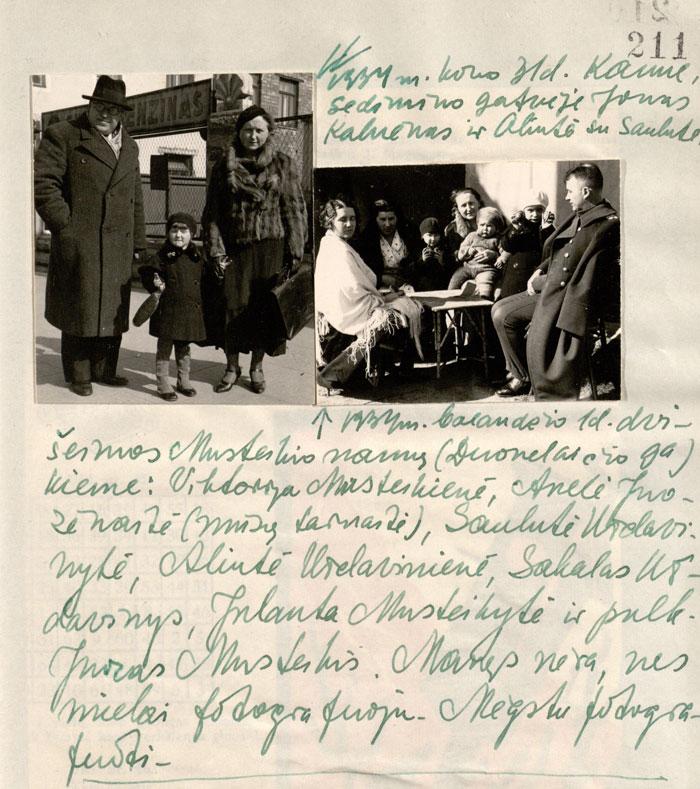 211
1934 m. kovo 31 d. Kaune
Gedimino gatvėje Jonas
Kalnėnas ir Alintė su Saulute.
ENZINAS
↑ 1934 m. balandžio 1 d. dvi-
šeimos Musteikio namų (Duonelaičio ga)
kieme: Viktorija Musteikienė, Anelė Juo-
zėnaitė (mūsų tarnaitė), Saulutė Urdavi-
nytė, Alintė Urdavinienė, Sakalas Ur-
davinys, Jolanta Musteikytė ir pulk.
Juozas Musteikis. Manęs nėra, nes
mielai fotografuoju - Mėgstu fotogra-
fuoti -